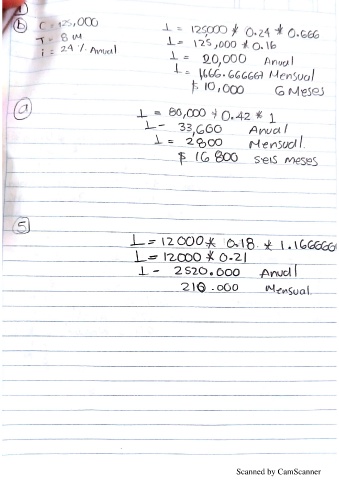 ①
ⓑ C = 125,000
T = 8 m
i = 24 % Anual
I = 125000 * 0.24 * 0.666
I = 125,000 * 0.16
I = 20,000 Anual
I = 1666.666667 Mensual
$ 10,000 6 Meses
ⓐ
I = 80,000 * 0.42 * 1
I - 33,600 Anual
I = 2800 Mensual.
$ 16 800 seis meses
⑤
I = 12000 * 0.18 * 1.166666
I = 12000 * 0.21
I - 2520.000 Anual
210.000 Mensual
Scanned by CamScanner